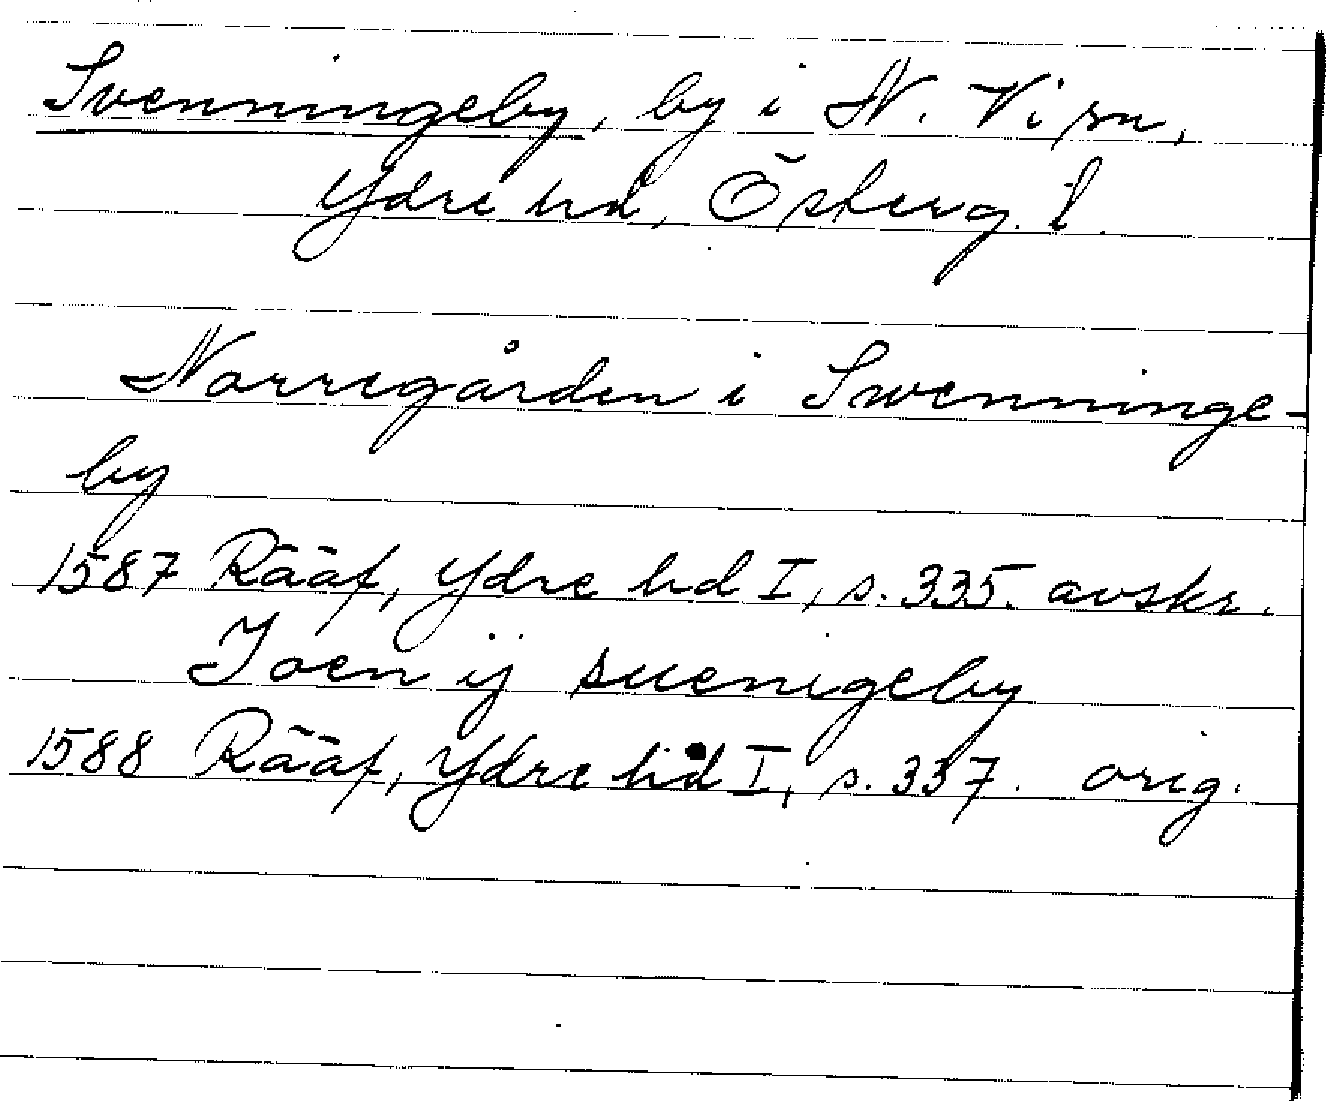 Svenningeby, by i N. Vi sn,
Ydre hd, Österg. l.
Norregården i Swenninge-
by
1587 Rääf, Ydre hd I, s. 335. avskr.
Joen ij suenigeby
1588 Rääf, Ydre hd I, s. 337. orig.